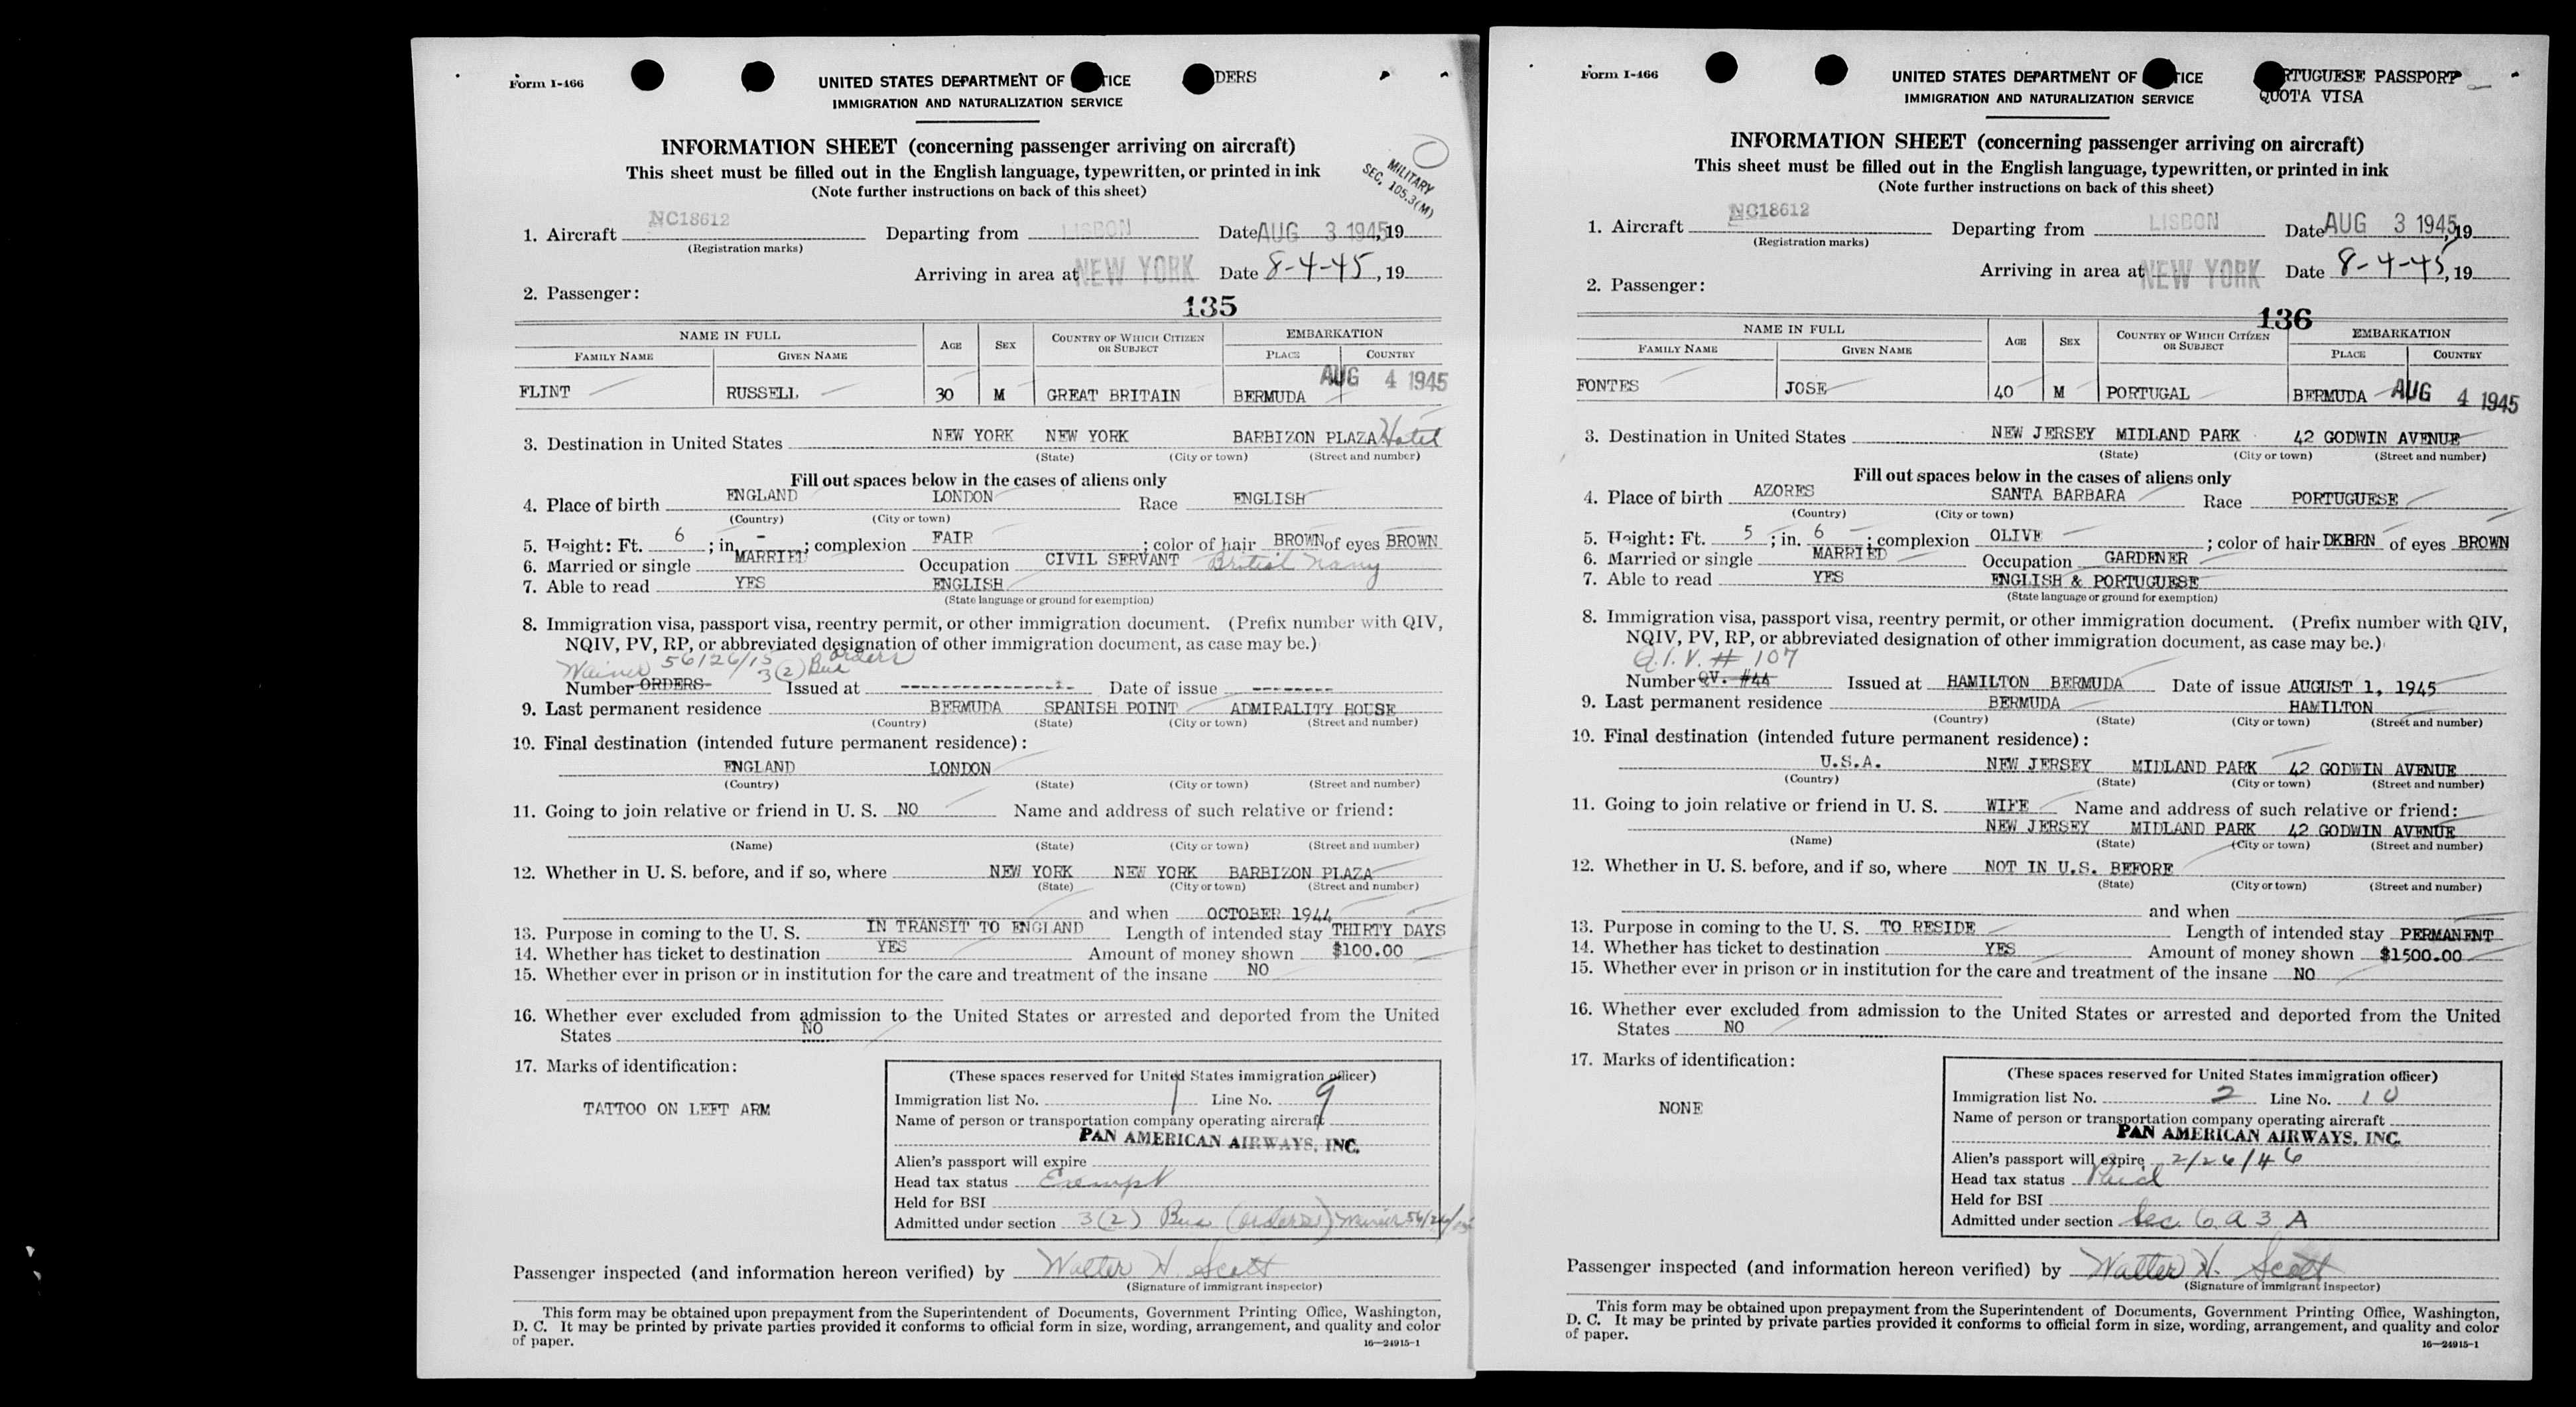 Form I-466
UNITED STATES DEPARTMENT OF TICE DERS
IMMIGRATION AND NATURALIZATION SERVICE
INFORMATION SHEET (concerning passenger arriving on aircraft)
This sheet must be filled out in the English language, typewritten, or printed in ink
(Note further instructions on back of this sheet)
MILITARY
SEC. 105.3(M)
1. Aircraft NC18612 Departing from LISBON Date AUG 3 1945, 19
(Registration marks)
Arriving in area at NEW YORK Date 8-4-45, 19
2. Passenger:
135
NAME IN FULL AGE SEX COUNTRY OF WHICH CITIZEN OR SUBJECT EMBARKATION
FAMILY NAME GIVEN NAME PLACE COUNTRY
AUG 4 1945
FLINT RUSSELL 30 M GREAT BRITAIN BERMUDA
3. Destination in United States NEW YORK NEW YORK BARBIZON PLAZA Hotel
(State) (City or town) (Street and number)
Fill out spaces below in the cases of aliens only
4. Place of birth ENGLAND LONDON Race ENGLISH
(Country) (City or town)
5. Height: Ft. 6 ; in. - ; complexion FAIR ; color of hair BROWN of eyes BROWN
6. Married or single MARRIED Occupation CIVIL SERVANT British Navy
7. Able to read YES ENGLISH
(State language or ground for exemption)
8. Immigration visa, passport visa, reentry permit, or other immigration document. (Prefix number with QIV,
NQIV, PV, RP, or abbreviated designation of other immigration document, as case may be.)
56126/15 3(2) orders
Number ORDERS Issued at ---------------- Date of issue --------
9. Last permanent residence BERMUDA SPANISH POINT ADMIRALITY HOUSE
(Country) (State) (City or town) (Street and number)
10. Final destination (intended future permanent residence):
ENGLAND LONDON
(Country) (State) (City or town) (Street and number)
11. Going to join relative or friend in U. S. NO Name and address of such relative or friend:
(Name) (State) (City or town) (Street and number)
12. Whether in U. S. before, and if so, where NEW YORK NEW YORK BARBIZON PLAZA
(State) (City or town) (Street and number)
and when OCTOBER 1944
13. Purpose in coming to the U. S. IN TRANSIT TO ENGLAND Length of intended stay THIRTY DAYS
14. Whether has ticket to destination YES Amount of money shown $100.00
15. Whether ever in prison or in institution for the care and treatment of the insane NO
16. Whether ever excluded from admission to the United States or arrested and deported from the United
States NO
17. Marks of identification:
TATTOO ON LEFT ARM
(These spaces reserved for United States immigration officer)
Immigration list No. 1 Line No. 9
Name of person or transportation company operating aircraft
PAN AMERICAN AIRWAYS, INC.
Alien's passport will expire
Head tax status Exempt
Held for BSI
Admitted under section 3(2) (orders)
Passenger inspected (and information hereon verified) by Walter H. Scott
(Signature of immigrant inspector)
This form may be obtained upon prepayment from the Superintendent of Documents, Government Printing Office, Washington,
D. C. It may be printed by private parties provided it conforms to official form in size, wording, arrangement, and quality and color
of paper.
16—24915-1
Form I-466
UNITED STATES DEPARTMENT OF TICE RTUGUESE PASSPORT
IMMIGRATION AND NATURALIZATION SERVICE QUOTA VISA
INFORMATION SHEET (concerning passenger arriving on aircraft)
This sheet must be filled out in the English language, typewritten, or printed in ink
(Note further instructions on back of this sheet)
1. Aircraft NC18612 Departing from LISBON Date AUG 3 1945, 19
(Registration marks)
Arriving in area at NEW YORK Date 8-4-45, 19
2. Passenger:
136
NAME IN FULL AGE SEX COUNTRY OF WHICH CITIZEN OR SUBJECT EMBARKATION
FAMILY NAME GIVEN NAME PLACE COUNTRY
FONTES JOSE 40 M PORTUGAL BERMUDA AUG 4 1945
3. Destination in United States NEW JERSEY MIDLAND PARK 42 GODWIN AVENUE
(State) (City or town) (Street and number)
Fill out spaces below in the cases of aliens only
4. Place of birth AZORES SANTA BARBARA Race PORTUGUESE
(Country) (City or town)
5. Height: Ft. 5 ; in. 6 ; complexion OLIVE ; color of hair DKBRN of eyes BROWN
6. Married or single MARRIED Occupation GARDENER
7. Able to read YES ENGLISH & PORTUGUESE
(State language or ground for exemption)
8. Immigration visa, passport visa, reentry permit, or other immigration document. (Prefix number with QIV,
NQIV, PV, RP, or abbreviated designation of other immigration document, as case may be.)
Q.I.V. # 107
Number QV. #44 Issued at HAMILTON BERMUDA Date of issue AUGUST 1, 1945
9. Last permanent residence BERMUDA HAMILTON
(Country) (State) (City or town) (Street and number)
10. Final destination (intended future permanent residence):
U.S.A. NEW JERSEY MIDLAND PARK 42 GODWIN AVENUE
(Country) (State) (City or town) (Street and number)
11. Going to join relative or friend in U. S. WIFE Name and address of such relative or friend:
NEW JERSEY MIDLAND PARK 42 GODWIN AVENUE
(Name) (State) (City or town) (Street and number)
12. Whether in U. S. before, and if so, where NOT IN U.S. BEFORE
(State) (City or town) (Street and number)
and when
13. Purpose in coming to the U. S. TO RESIDE Length of intended stay PERMANENT
14. Whether has ticket to destination YES Amount of money shown $1500.00
15. Whether ever in prison or in institution for the care and treatment of the insane NO
16. Whether ever excluded from admission to the United States or arrested and deported from the United
States NO
17. Marks of identification:
NONE
(These spaces reserved for United States immigration officer)
Immigration list No. 2 Line No. 10
Name of person or transportation company operating aircraft
PAN AMERICAN AIRWAYS, INC.
Alien's passport will expire 2/26/46
Head tax status Paid
Held for BSI
Admitted under section Sec. 6 a 3 A
Passenger inspected (and information hereon verified) by Walter H. Scott
(Signature of immigrant inspector)
This form may be obtained upon prepayment from the Superintendent of Documents, Government Printing Office, Washington,
D. C. It may be printed by private parties provided it conforms to official form in size, wording, arrangement, and quality and color
of paper.
16—24915-1